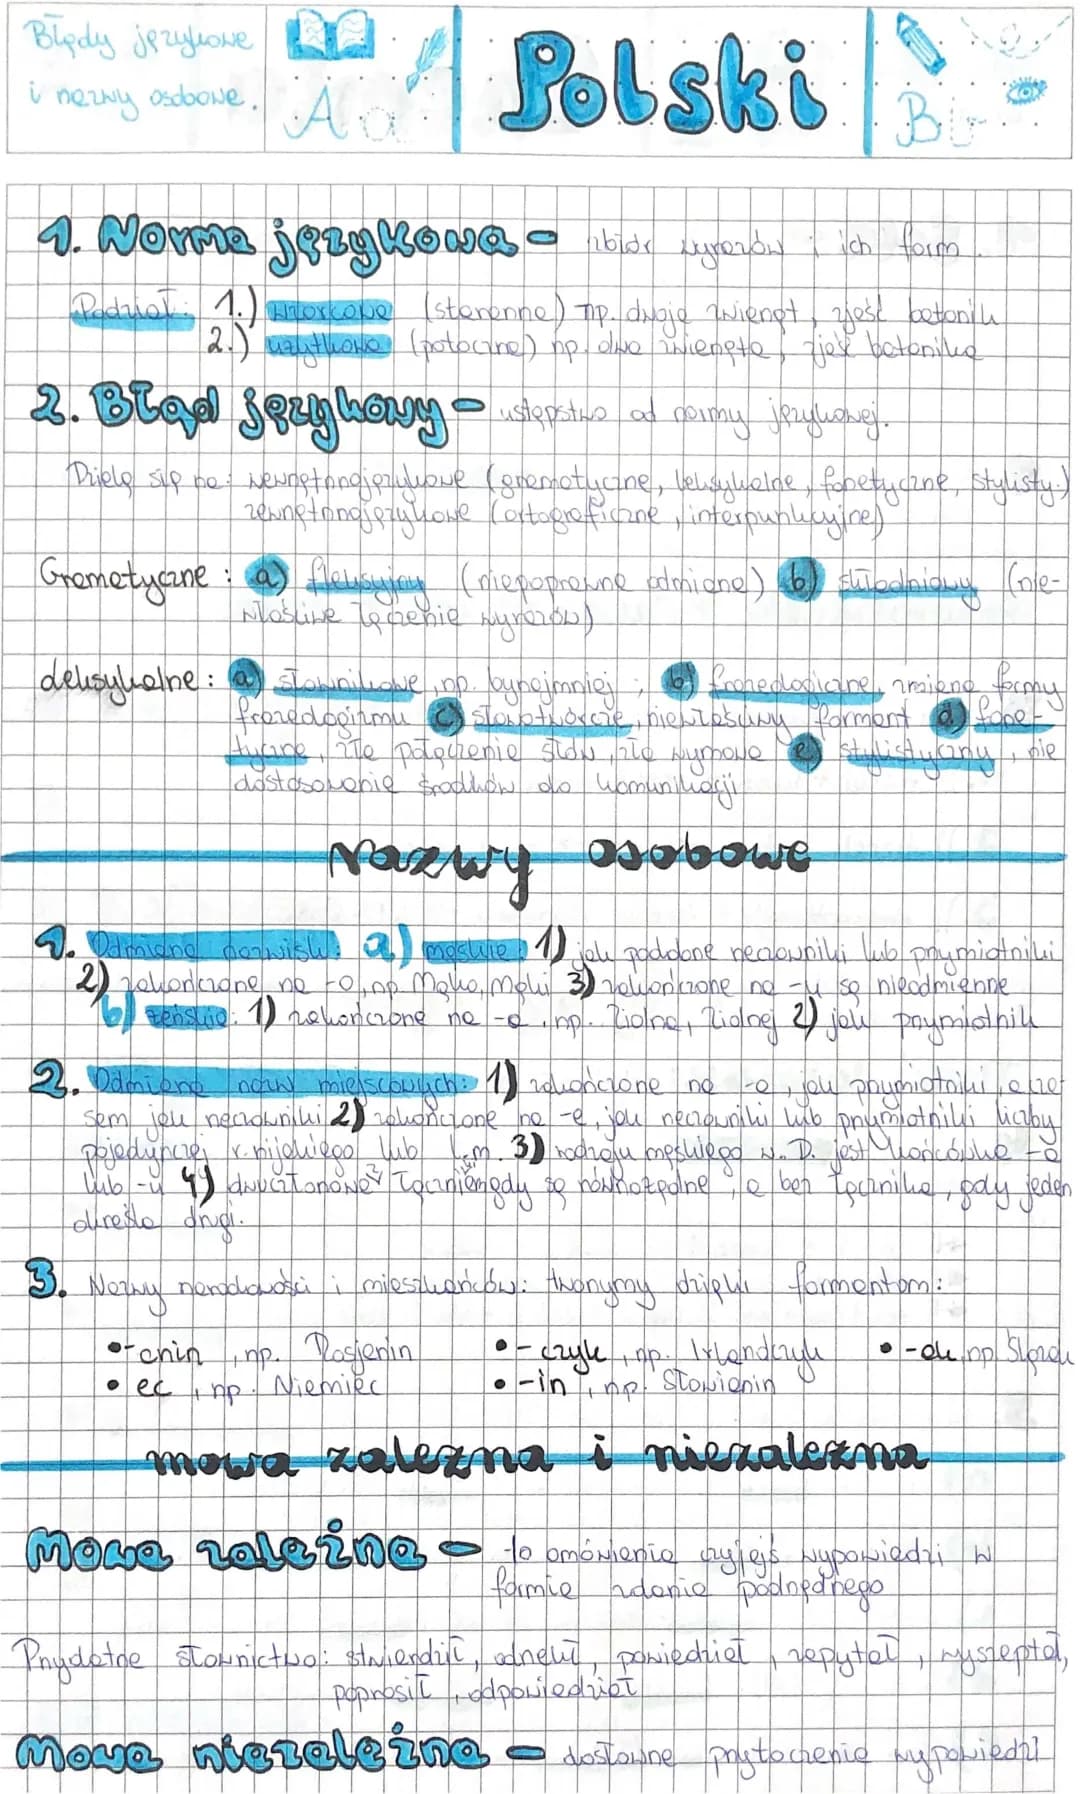 Błędy językowe
i nazwy osobowe.
Aa
Polski
Bb
1. Norma językowa - zbiór wyrazów i ich form.
Podział: 1.) wzorcowa (staranna) np. dwoje zwierząt, zjeść batonik
2.) użytkowa (potoczna) np. dwa zwierzęta, zjeść batonika
2. Błąd językowy - ustępstwo od normy językowej.
Dzielą się na: wewnętrznojęzykowe (gramatyczne, leksykalne, fonetyczne, stylisty.)
zewnętrznojęzykowe (ortograficzne, interpunkcyjne)
Gramatyczne: a) fleksyjny (niepoprawna odmiana) b) składniowy (nie-
właściwe łączenie wyrazów)
Leksykalne: a) słownikowe, np. bynajmniej; b) frazeologiczne, zmiana formy
frazeologizmu c) słowotwórcze, niewłaściwy formant d) fone-
tyczne, złe połączenie słów, zła wymowa e) stylistyczny, nie
dostosowanie środków do komunikacji
Nazwy osobowe
1. Odmiana nazwisk: a) męskie 1) jak podobne rzeczowniki lub przymiotniki
2) zakończone na -o, np. 3) zakończone na -u są nieodmienne
b) żeńskie: 1) zakończone na -a, np. Ziolna, Ziolnej 2) jak przymiotnik
2. Odmiana nazw miejscowych: 1) zakończone na -a, jak przymiotniki, a cza-
sem jak rzeczowniki 2) zakończone na -e, jak rzeczowniki lub przymiotniki liczby
pojedynczej r. nijakiego lub l.m. 3) rodzaju męskiego w D. jest końcówka -a
lub -u 4) dwuczłonowe z łącznikiem gdy są równorzędne, a bez łącznika, gdy jeden
określa drugi.
3. Nazwy narodowości i mieszkańców: tworzymy dzięki formantom:
• -anin, np. Rosjanin • -czyk, np. Irlandczyk • -ak, np. Słowak
• ec, np. Niemiec • -in, np. Słowianin
mowa zależna i niezależna
Mowa zależna - to omówienie czyjejś wypowiedzi w
formie zdania podrzędnego
Przydatne słownictwo: stwierdził, odrzekł, powiedział, zapytał, wyszeptał,
poprosił, odpowiedział
Mowa niezależna - dosłowne przytoczenie wypowiedzi